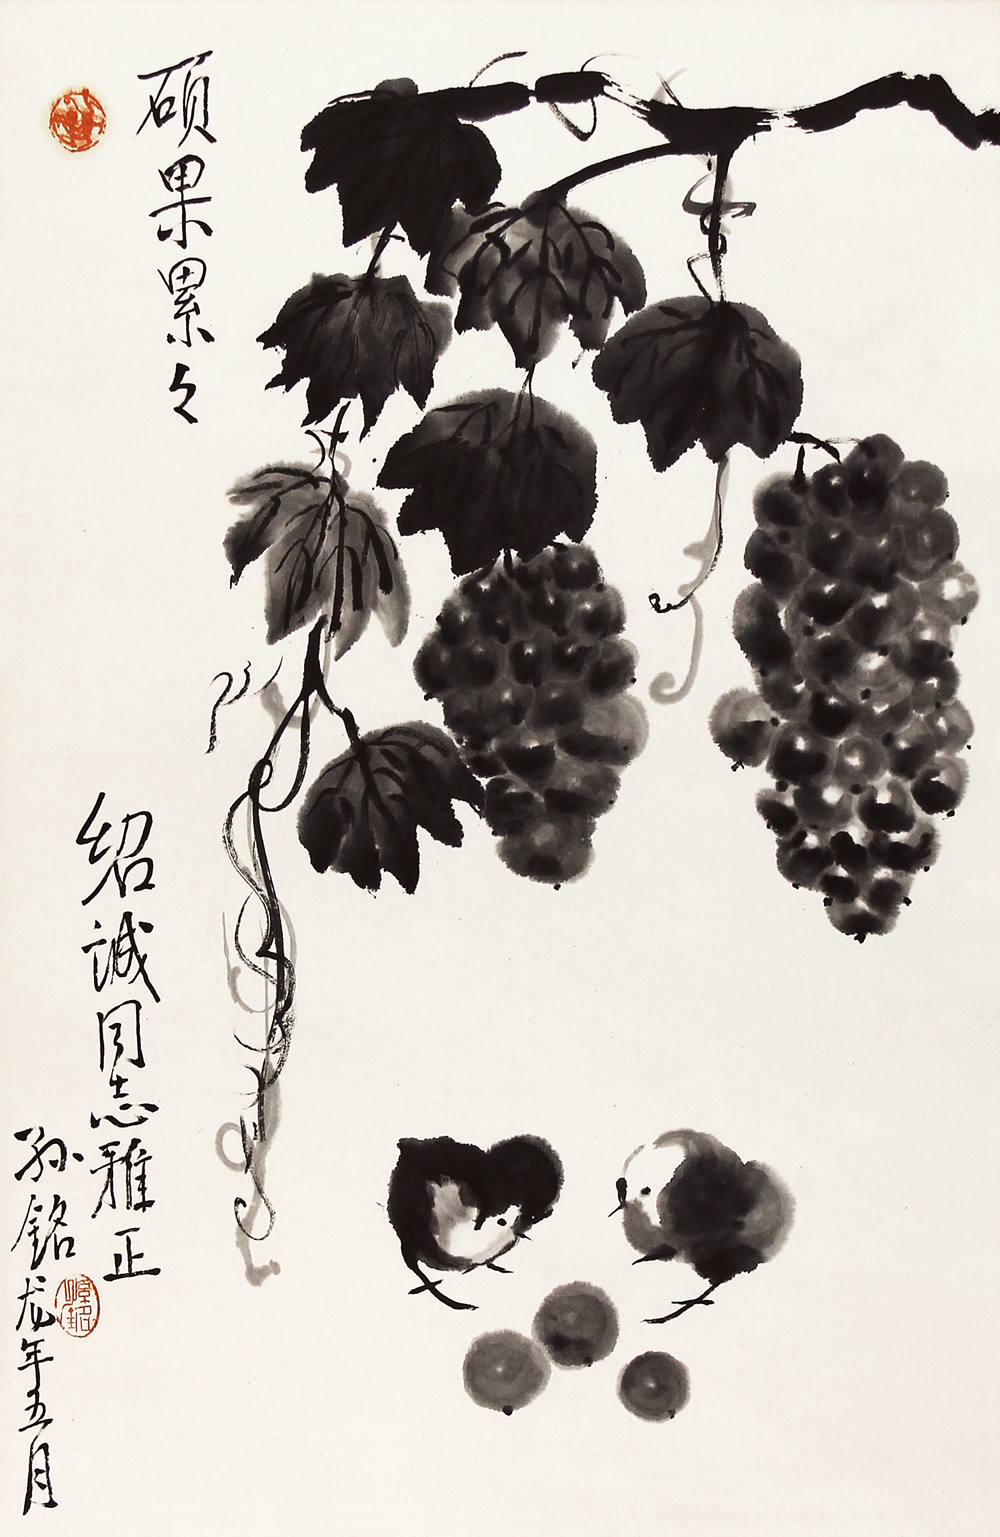 硕果累々
绍诚同志雅正
孙铭龙年五月